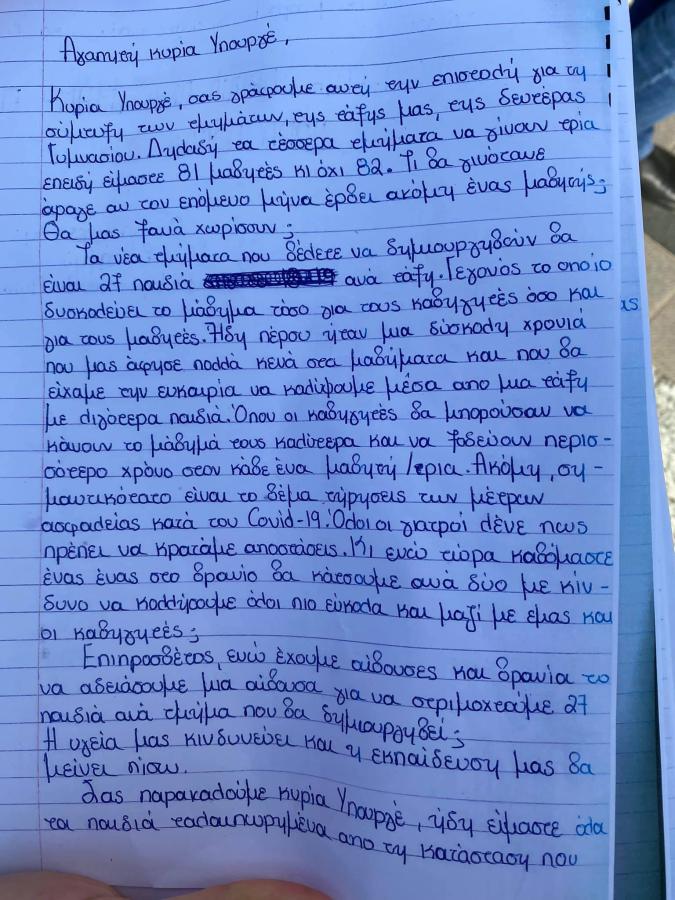 Αγαπητή κυρία Υπουργέ,
Κυρία Υπουργέ, σας γράφουμε αυτή την επιστολή για τη
σύμπτυξη των τμημάτων, της τάξης μας, της δευτέρας
Γυμνασίου. Δηλαδή τα τέσσερα τμήματα να γίνουν τρία
επειδή είμαστε 81 μαθητές κι όχι 82. Τι θα γινότανε
άραγε αν τον επόμενο μήνα έρθει ακόμη ένας μαθητής;
Θα μας ξανά χωρίσουν;
Τα νέα τμήματα που θέλετε να δημιουργηθούν θα
είναι 27 παιδιά ανά τάξη. Γεγονός το οποίο
δυσκολεύει το μάθημα τόσο για τους καθηγητές όσο και
για τους μαθητές. Ήδη πέρυσι ήταν μια δύσκολη χρονιά
που μας άφησε πολλά κενά στα μαθήματα και που θα
είχαμε την ευκαιρία να καλύψουμε μέσα απο μια τάξη
με λιγότερα παιδιά. Όπου οι καθηγητές θα μπορούσαν να
κάνουν το μάθημά τους καλύτερα και να ξοδεύουν περισ-
σότερο χρόνο στον κάθε ένα μαθητή/τρια. Ακόμη, ση-
μαντικότατο είναι το θέμα τήρησης των μέτρων
ασφαλείας κατά του Covid-19. Όλοι οι γιατροί λένε πως
πρέπει να κρατάμε αποστάσεις. Κι ενώ τώρα καθόμαστε
ένας ένας στο θρανίο θα κάτσουμε ανά δύο με κίν-
δυνο να κολλήσουμε όλοι πιο εύκολα και μαζί με εμας και
οι καθηγητές;
Επιπροσθέτος, ενώ έχουμε αίθουσες και θρανία το
να αδειάσουμε μια αίθουσα για να στριμοχτούμε 27
παιδιά ανά τμήμα που θα δημιουργηθεί;
Η υγεία μας κινδυνεύει και η εκπαίδευση μας θα
μείνει πίσω.
Σας παρακαλούμε κυρία Υπουργέ, ήδη είμαστε όλα
τα παιδιά ταλαιπωρημένα απο τη κατάσταση που